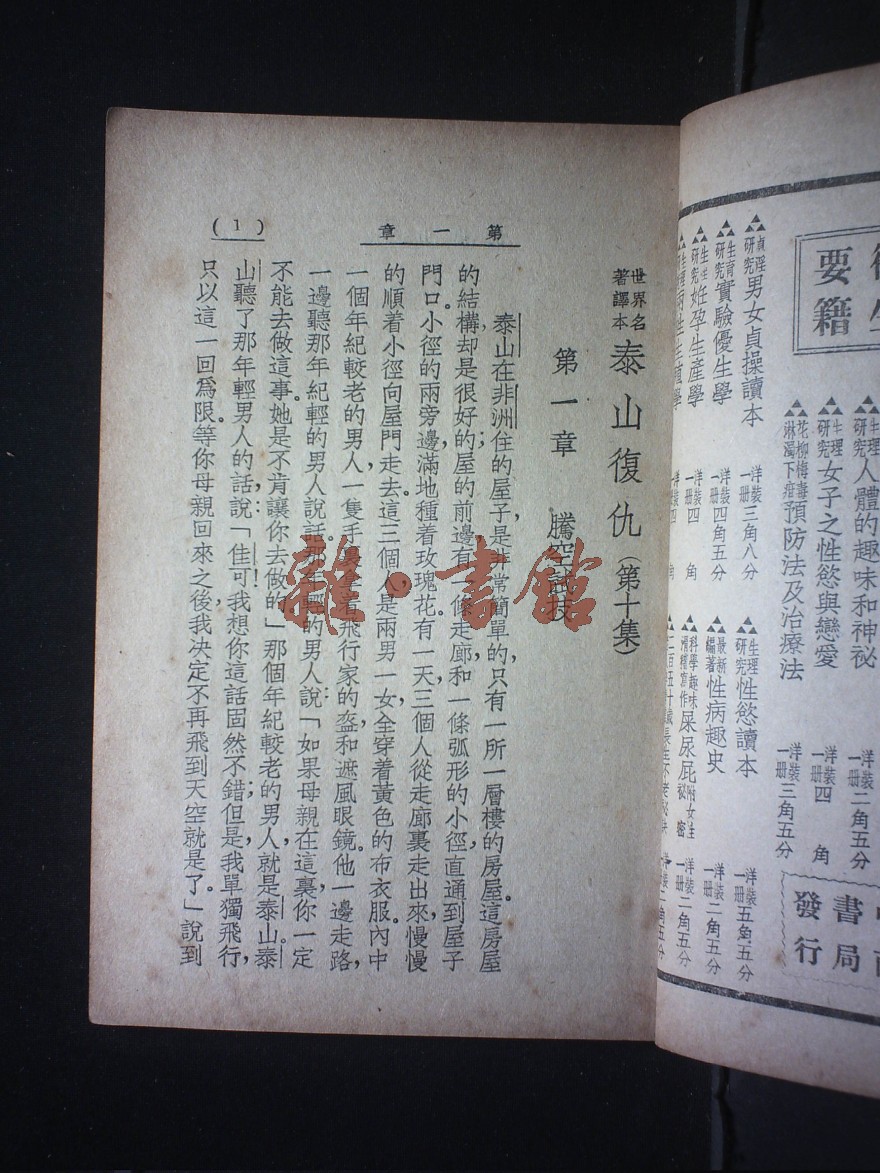 要籍
貞淫研究 男女貞操讀本 洋裝一册 三角八分
生育研究 實驗優生學 洋裝一册 四角五分
妊孕生產學 洋裝一册 四角
生理研究 人體的趣味和神祕 洋裝一册 三角五分
生理研究 女子之性慾與戀愛 洋裝一册 四角
花柳梅毒淋濁下疳 預防法及治療法 洋裝一册 三角五分
生理研究 性慾讀本 洋裝一册 五角五分
最新編著 性病趣史 洋裝一册 二角五分
科學趣味滑稽寫作 屎尿屁 祕密 洋裝一册 二角五分
書局
發行
世界名著譯本 泰山復仇(第十集)
第一章 騰空試技
第一章
(1)
泰山在非洲住的屋子,是非常簡單的,只有一所一層樓的房屋,這房屋
的結構却是很好的;屋的前邊有一條走廊,和一條弧形的小徑,直通到屋子
門口小徑的兩旁邊,滿地種着玫瑰花。有一天,三個人從走廊裏走出來,慢慢
的順着小徑向屋門走去。這三個人是兩男一女,全穿着黃色的布衣服。內中
一個年紀較老的男人,一隻手裏拿着飛行家的盔和遮風眼鏡。他一邊走路,
一邊聽那年紀輕的男人說話。那年輕的男人說:「如果母親在這裏,你一定
不能去做這事,她是不肯讓你去做的。」那個年紀較老的男人就是泰山。泰
山聽了那年輕男人的話,說:「佳可!我想你這話固然不錯;但是,我單獨飛行,
只以這一回爲限。等你母親回來之後,我決定不再飛到天空就是了。」說到
雜·書館